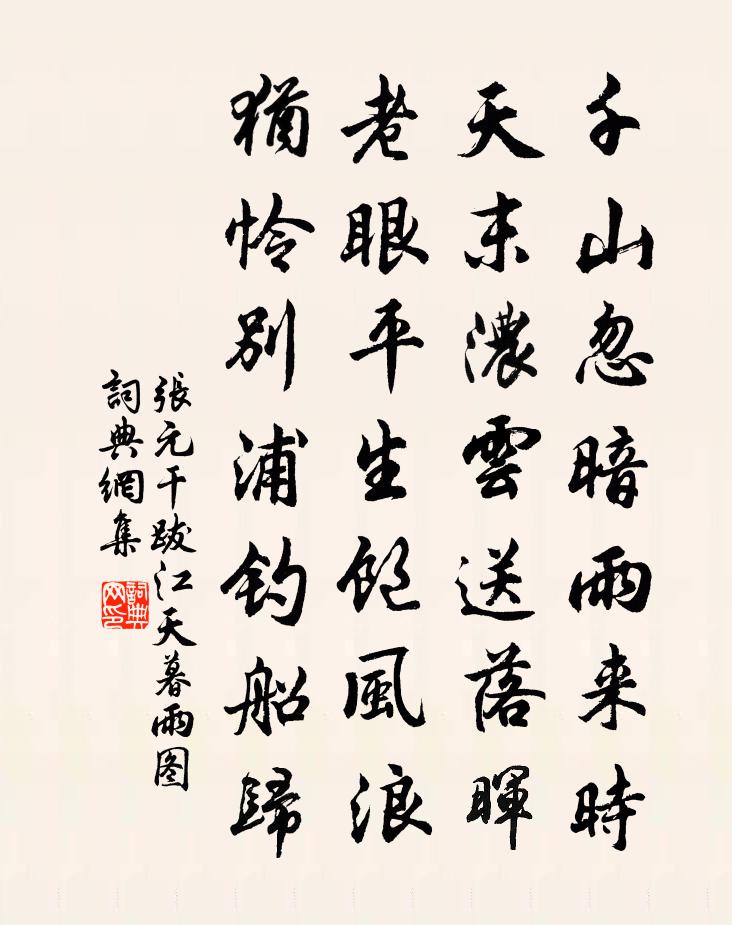 千山忽暗雨来時
天末濃雲送落暉
老眼平生飽風浪
猶怜别浦釣船歸
張元干跋江天暮雨图
詞典網集
詞典
网印